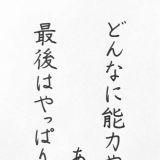 どんなに能力や
あ
最後はやっぱり